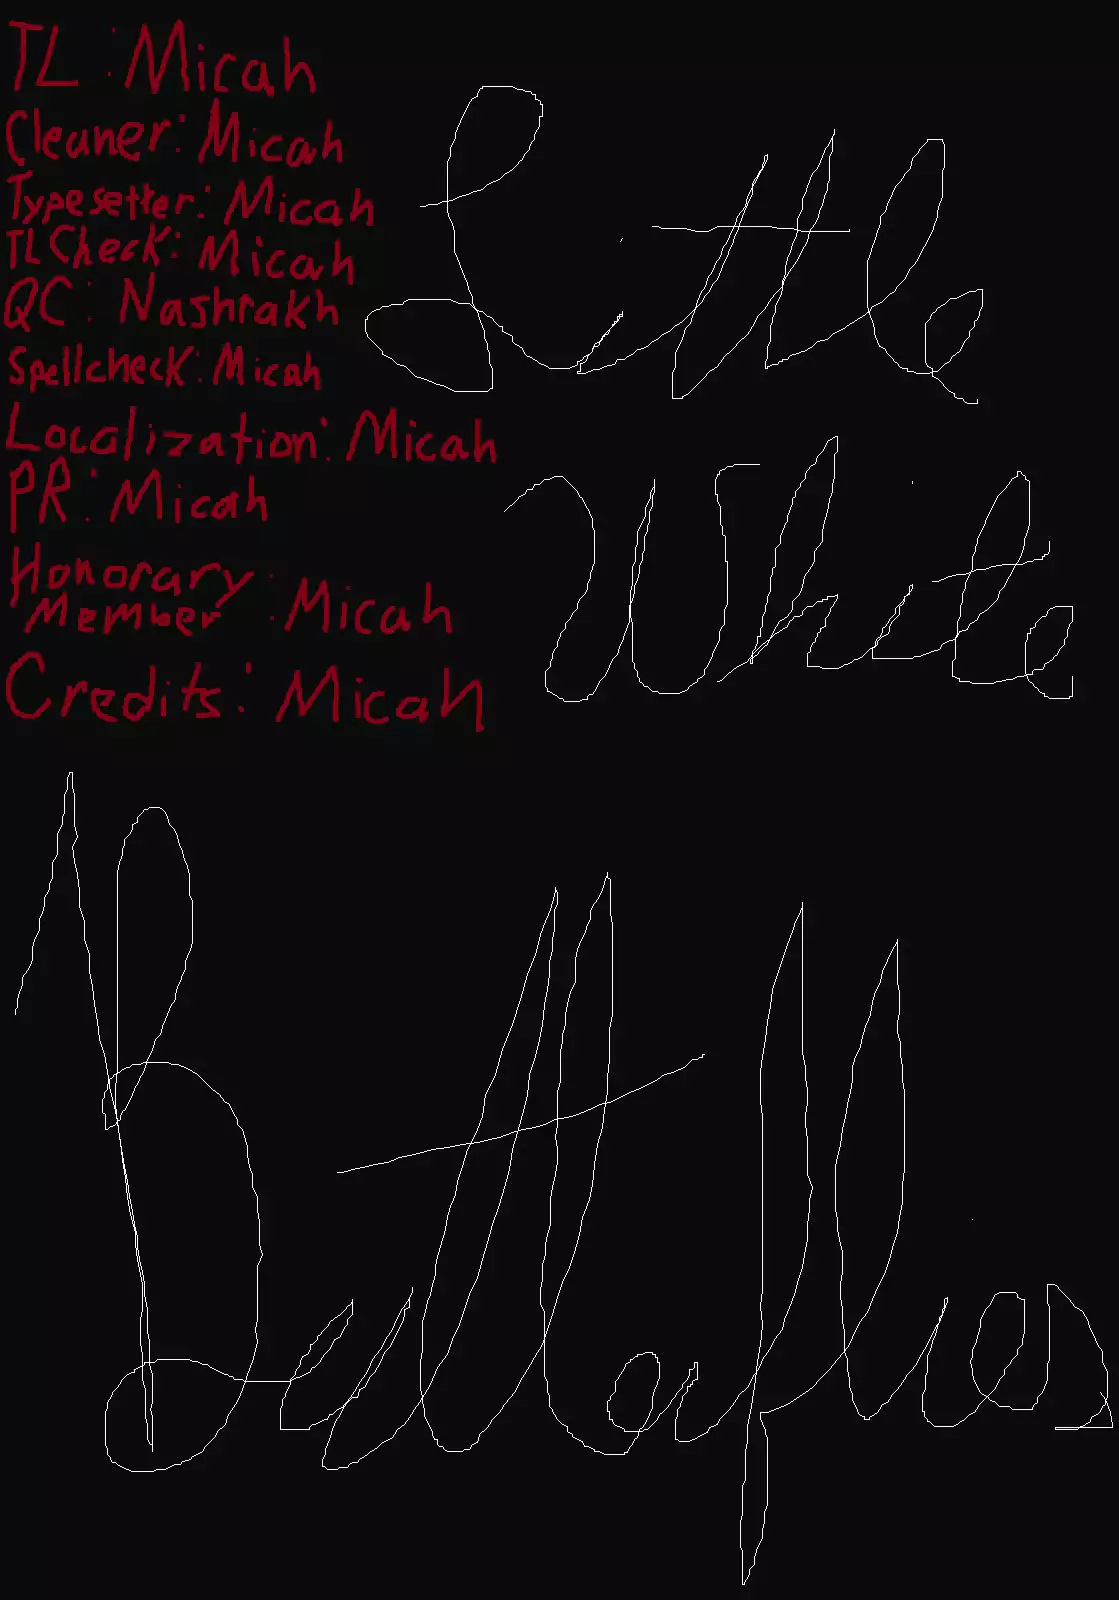 TL: Micah
Cleaner: Micah
Typesetter: Micah
TLCheck: Micah
QC: Nashrakh
Spellcheck: Micah
Localization: Micah
PR: Micah
Honorary Member: Micah
Credits: Micah
Little
White
Butterflies